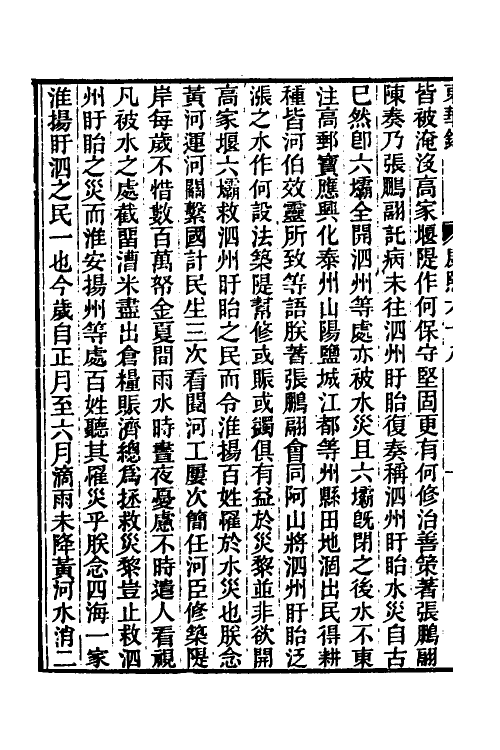 東華錄 康熙六十八 一
皆被淹沒高家堰隄作何保守堅固更有何修治善策著張鵬翮
陳奏乃張鵬翮託病未往泗州盱眙復奏稱泗州盱眙水災自古
已然卽六壩全開泗州等處亦被水災且六壩旣閉之後水不東
注高郵寶應興化泰州山陽鹽城江都等州縣田地涸出民得耕
種皆河伯效靈所致等語朕著張鵬翮會同阿山將泗州盱眙泛
漲之水作何設法築隄幫修或賑或蠲俱有益於災黎並非欲開
高家堰六壩救泗州盱眙之民而令淮揚百姓罹於水災也朕念
黃河運河關繫國計民生三次看閱河工屢次簡任河臣修築隄
岸每歲不惜數百萬帑金夏間雨水時晝夜憂慮不時遣人看視
凡被水之處截畱漕米盡出倉糧賑濟總爲拯救災黎豈止救泗
州盱眙之災而淮安揚州等處百姓聽其罹災乎朕念四海一家
淮揚盱泗之民一也今歲自正月至六月滴雨未降黃河水消二